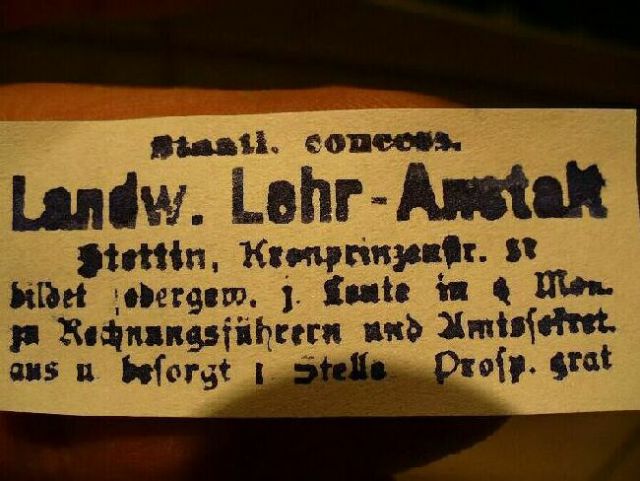 Staatl. concess.
Landw. Lehr-Anstalt
Stettin, Kronprinzenstr.
bildet jedergew. j. Leute in Mon.
zu Rechnungsführern und Amtssekret.
aus u besorgt j Stelle Prosp. grat